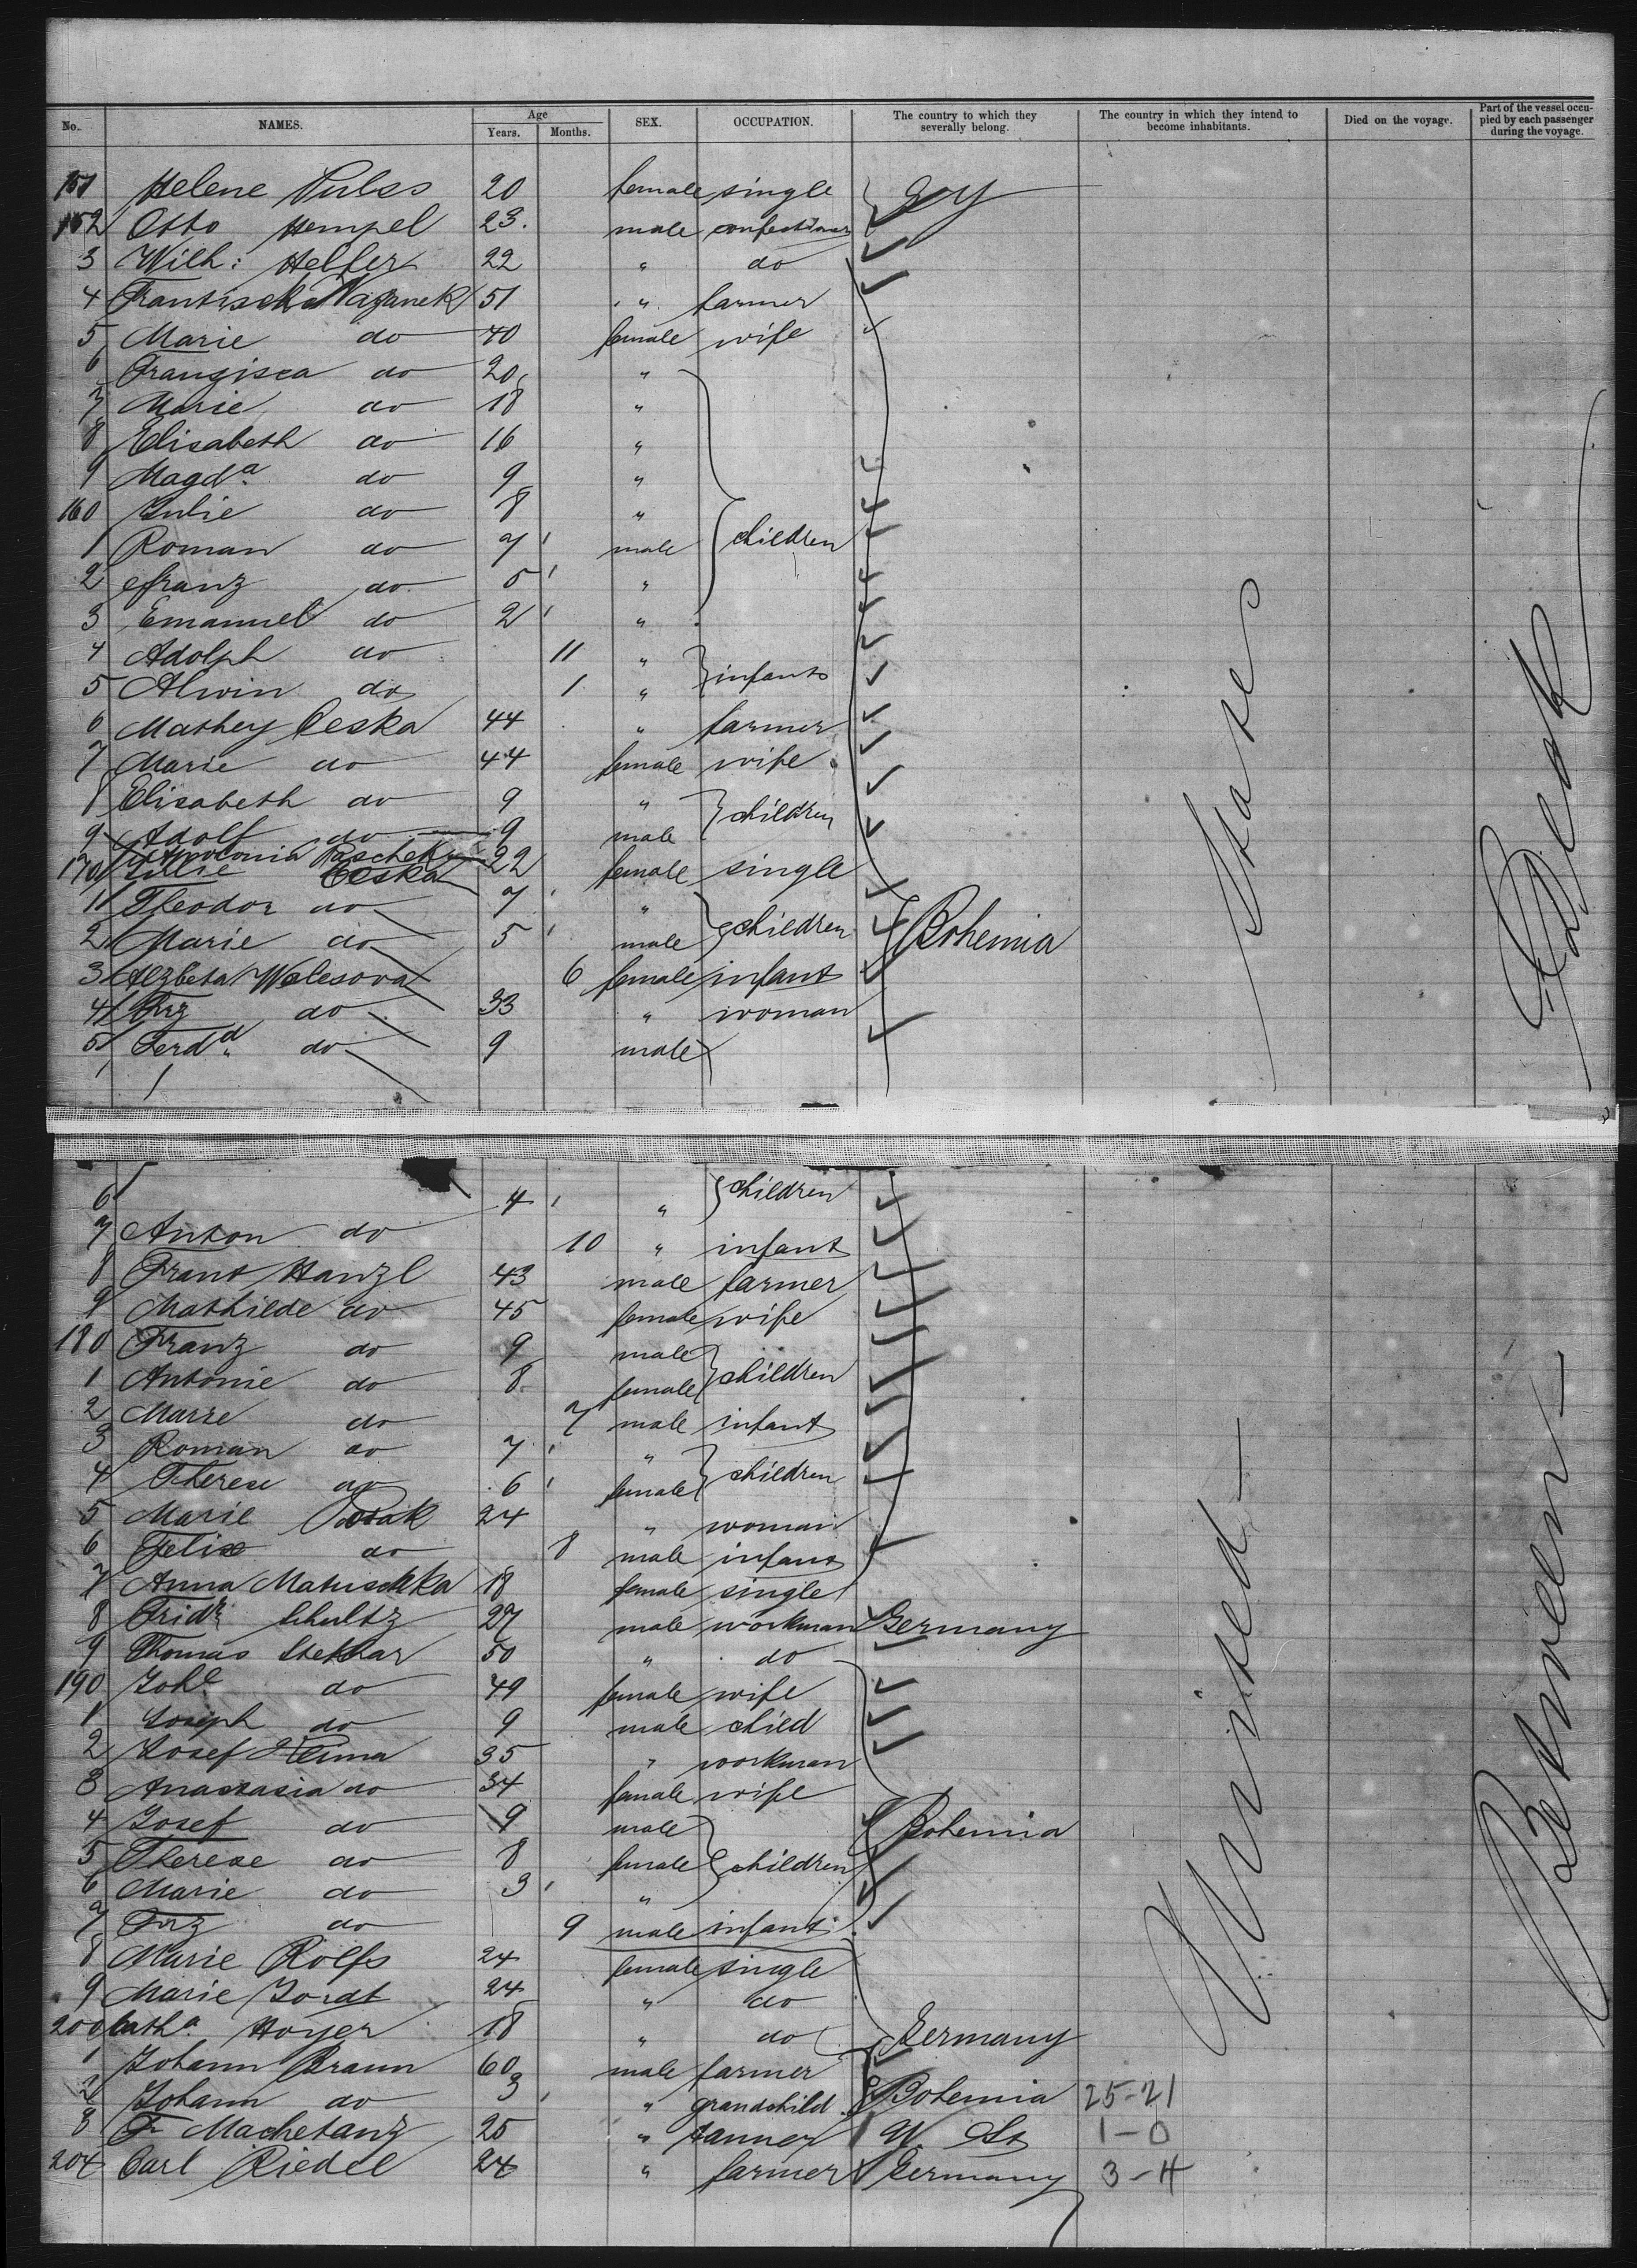 No. NAMES. Age Years. Months. SEX. OCCUPATION. The country to which they severally belong. The country in which they intend to become inhabitants. Died on the voyage. Part of the vessel occupied by each passenger during the voyage.
151 Helene 20 female single Gy
152 Otto Hempel 23. male confectioner
3 Wilh: Helfer 22 " do
4 Frantisek 51 " farmer
5 Marie do 40 female wife
6 Franzisca do 20 "
7 Marie do 18 "
8 Elisabeth do 16 "
9 Magda do 9 "
160 Julie do 8 "
1 Roman do 7 male children
2 Franz do 5 "
3 Emanuel do 2 "
4 Adolph do 11 "
5 Alwin do 1 " infants
6 Mathey Ceska 44 " farmer
7 Marie do 44 female wife
8 Elisabeth do 9 " children
9 Adolf do 9 male
Appolonia Paschek
170 Julie Ceska 22 female single
1 Theodor do 7 "
2 Marie do 5 male children Bohemia
3 Alzbeta Walesova 6 female infant
4 Frz do 33 " woman
5 Ferdd do 9 male
6 4 " children
7 Anton do 10 " infant
8 Frant Hanzl 43 male farmer
9 Mathilde do 45 female wife
180 Franz do 9 male
1 Antonie do 8 female children
2 Marie do 7 male infant
3 Roman do 7 "
4 Therese do 6 female children
5 Marie 24 " woman
6 Felix do 8 male infant
7 Anna Matuschka 18 female single
8 Fridr Schultz 27 male workman Germany
9 Thomas 50 " do
190 do 49 female wife
1 Joseph do 9 male child
2 Josef Klima 35 " workman
3 Anastasia do 34 female wife
4 Josef do 9 male Bohemia
5 Therese do 8 female children
6 Marie do 3 "
7 Frz do 9 male infant
8 Marie Rolfs 24 female single
9 Marie Jordt 24 " do
200 Catha Hoyer 18 " do Germany
1 Johann Braun 60 male farmer
2 Johann do 3 " grandchild Bohemia 25-21
3 Fr Machetanz 25 " tanner U Sts 1-0
204 Carl Riedel 24 " farmer Germany 3-4
United States
Between Deck